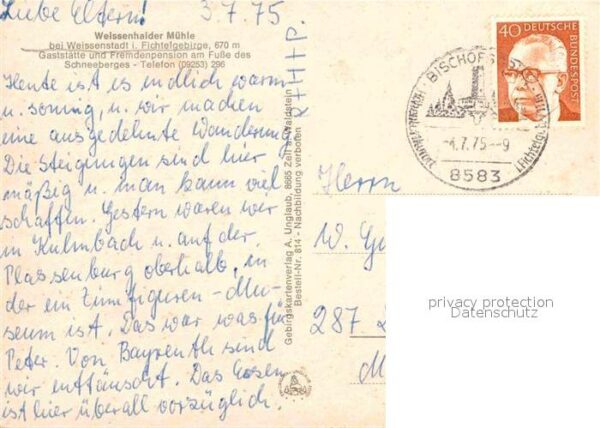 Liebe Eltern! 3.7.75
Weissenhaider Mühle
bei Weissenstadt i. Fichtelgebirge, 670 m
Gaststätte und Fremdenpension am Fuße des
Schneeberges - Telefon (09253) 296
Heute ist es endlich warm
u. sonnig, u. wir machen
eine ausgedehnte Wanderung.
Die Steigungen sind hier
mäßig u. man kann viel
schaffen. Gestern waren wir
in Kulmbach u. auf der
Plassenburg oberhalb, in
der ein Zinnfiguren-Mu-
seum ist. Das war was für
Peter. Von Bayreuth sind
wir enttäuscht. Das Essen
ist hier überall vorzüglich.
Gebirgskartenverlag A. Unglaub, 8665 Zell a. Waldstein
Bestell-Nr. 814 - Nachbildung verboten
40 DEUTSCHE
BUNDESPOST
BISCHOFS
-4.7.75--9
8583
Herrn
W.
287
privacy protection
Datenschutz